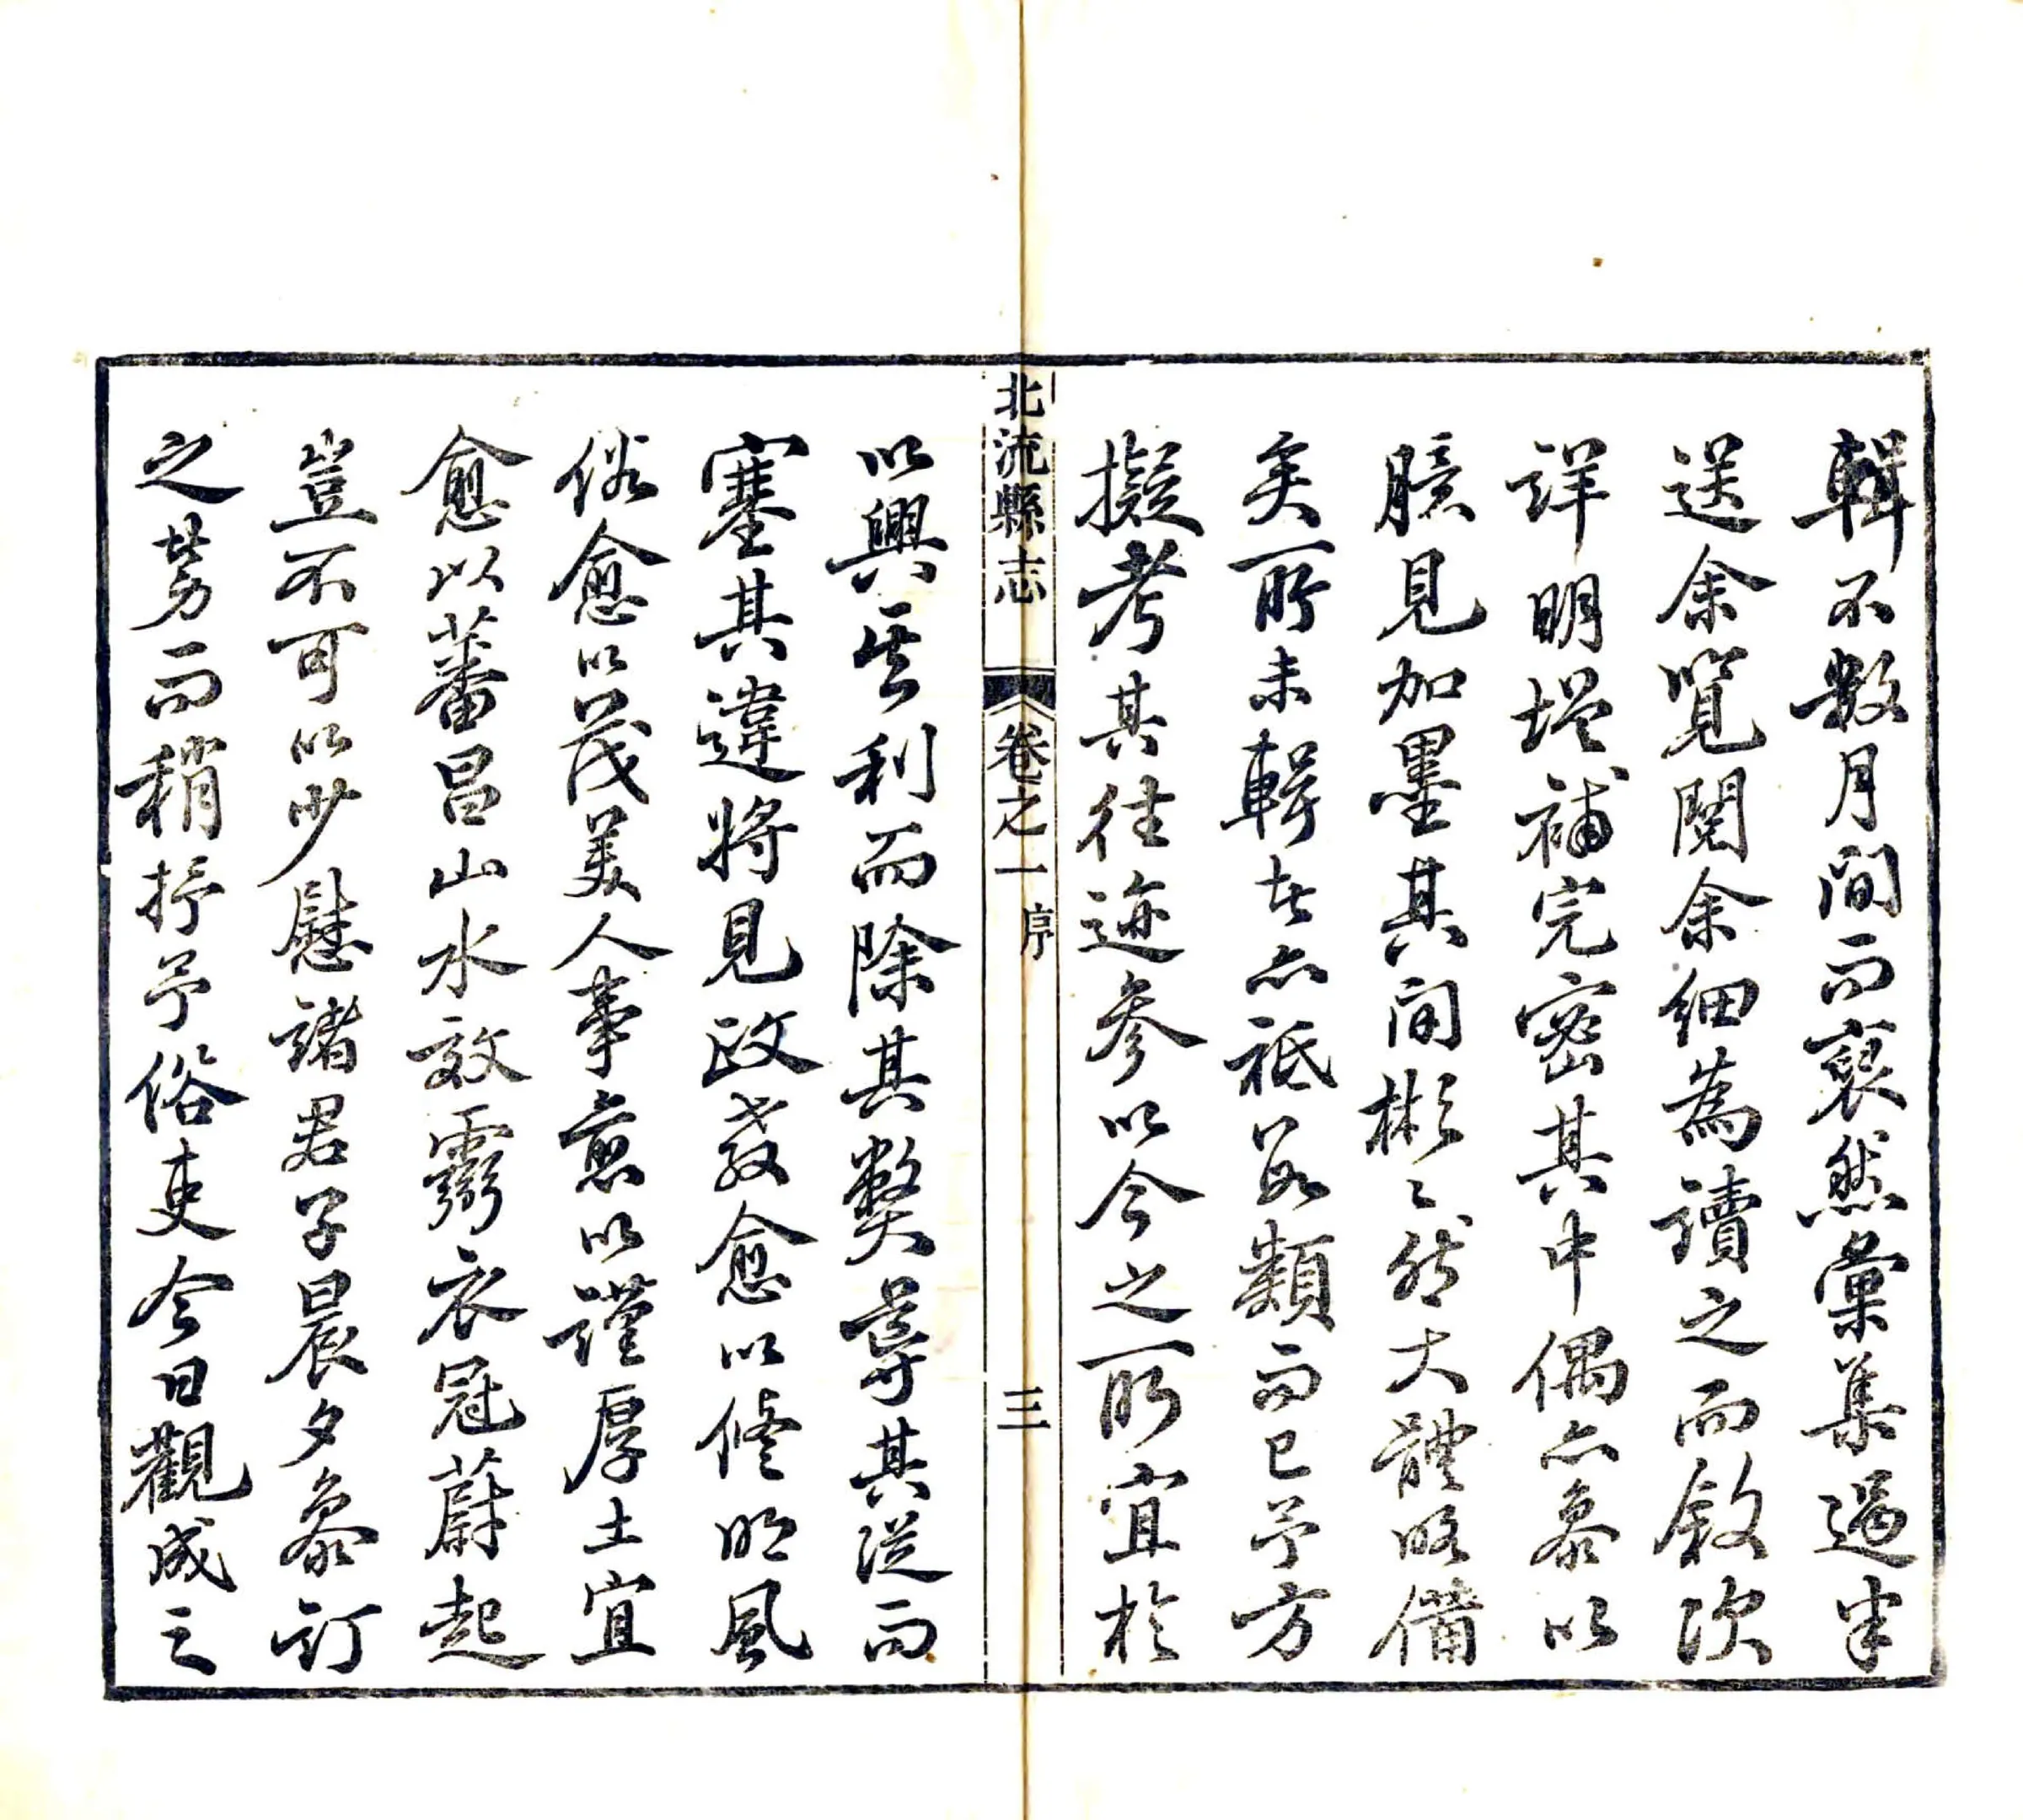 輯不數月間而裒然彙集過半
送余覽閱余細為讀之而敘次
詳明增補完密其中偶亦叅以
臆見加墨其间彬〻然大體略備
矣所未輯者亦祗類而已予方
擬考其往迹參以今之所宜於
北流縣志 卷之一 序 三
以興其利而除其弊導其從而
塞其違將見政教愈以修明風
俗愈以茂美人事愈以謹厚土宜
愈以蕃昌山水效靈衣冠蔚起
豈不可以少慰諸君子晨夕叅訂
之勞而稍抒予俗吏今日觀成之